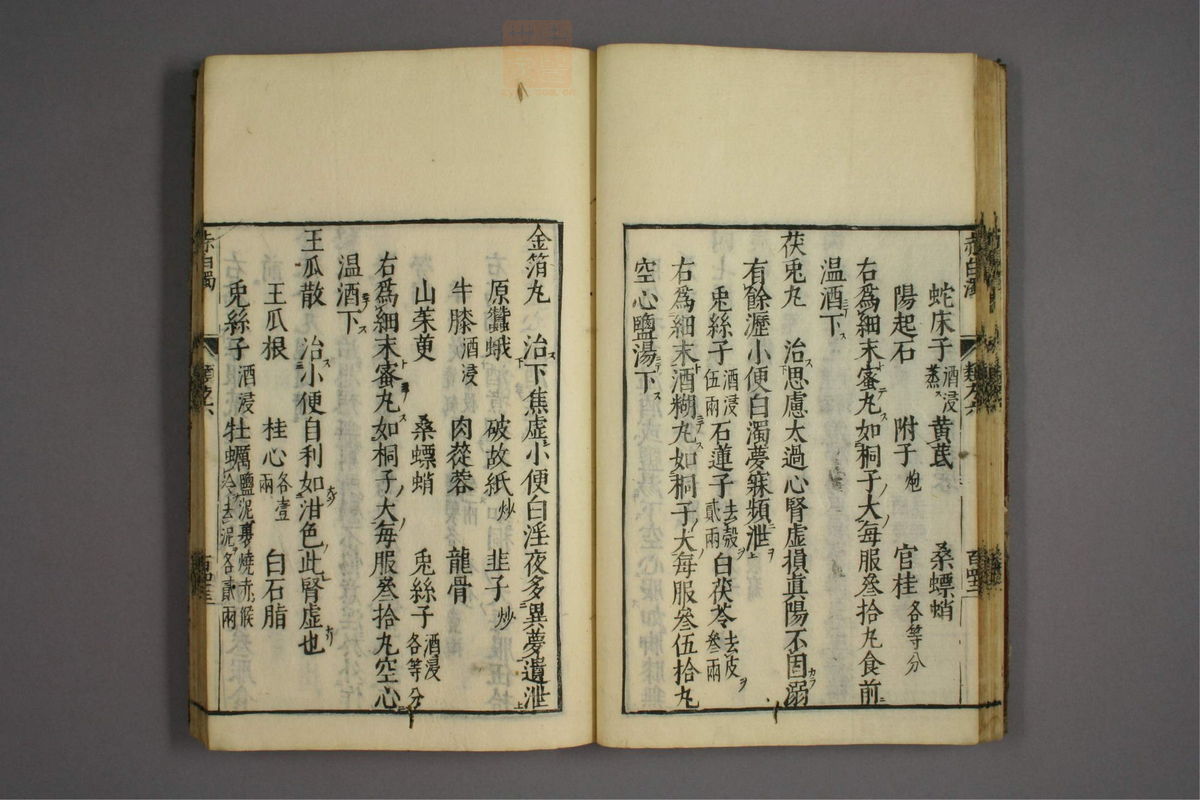 赤白濁
蛇床子酒浸蒸 黄茋 桑螵蛸
陽起石 附子炮 官桂各等分
右爲細末蜜丸如桐子大每服叄拾丸食前
温酒下
茯兎丸 治思慮太過心腎虚損眞陽不固溺
有餘瀝小便白濁夢寐頻泄
兎絲子酒浸伍兩 石蓮子去殼貳兩 白茯苓去皮叄兩
右爲細末酒糊丸如桐子大每服叄伍拾丸
空心鹽湯下
金箔丸 治下焦虚小便白淫夜多異夢遺泄
原蠶蛾 破故紙炒 韭子炒
牛膝酒浸 肉蓯蓉 龍骨
山茱萸 桑螵蛸 兎絲子酒浸各等分
右爲細末蜜丸如桐子大每服叄拾丸空心
温酒下
王瓜散 治小便自利如泔色此腎虚也
王瓜根 桂心各壹兩 白石脂
兎絲子酒浸 牡蠣鹽泥裹燒赤候冷去泥各貳兩
赤白濁